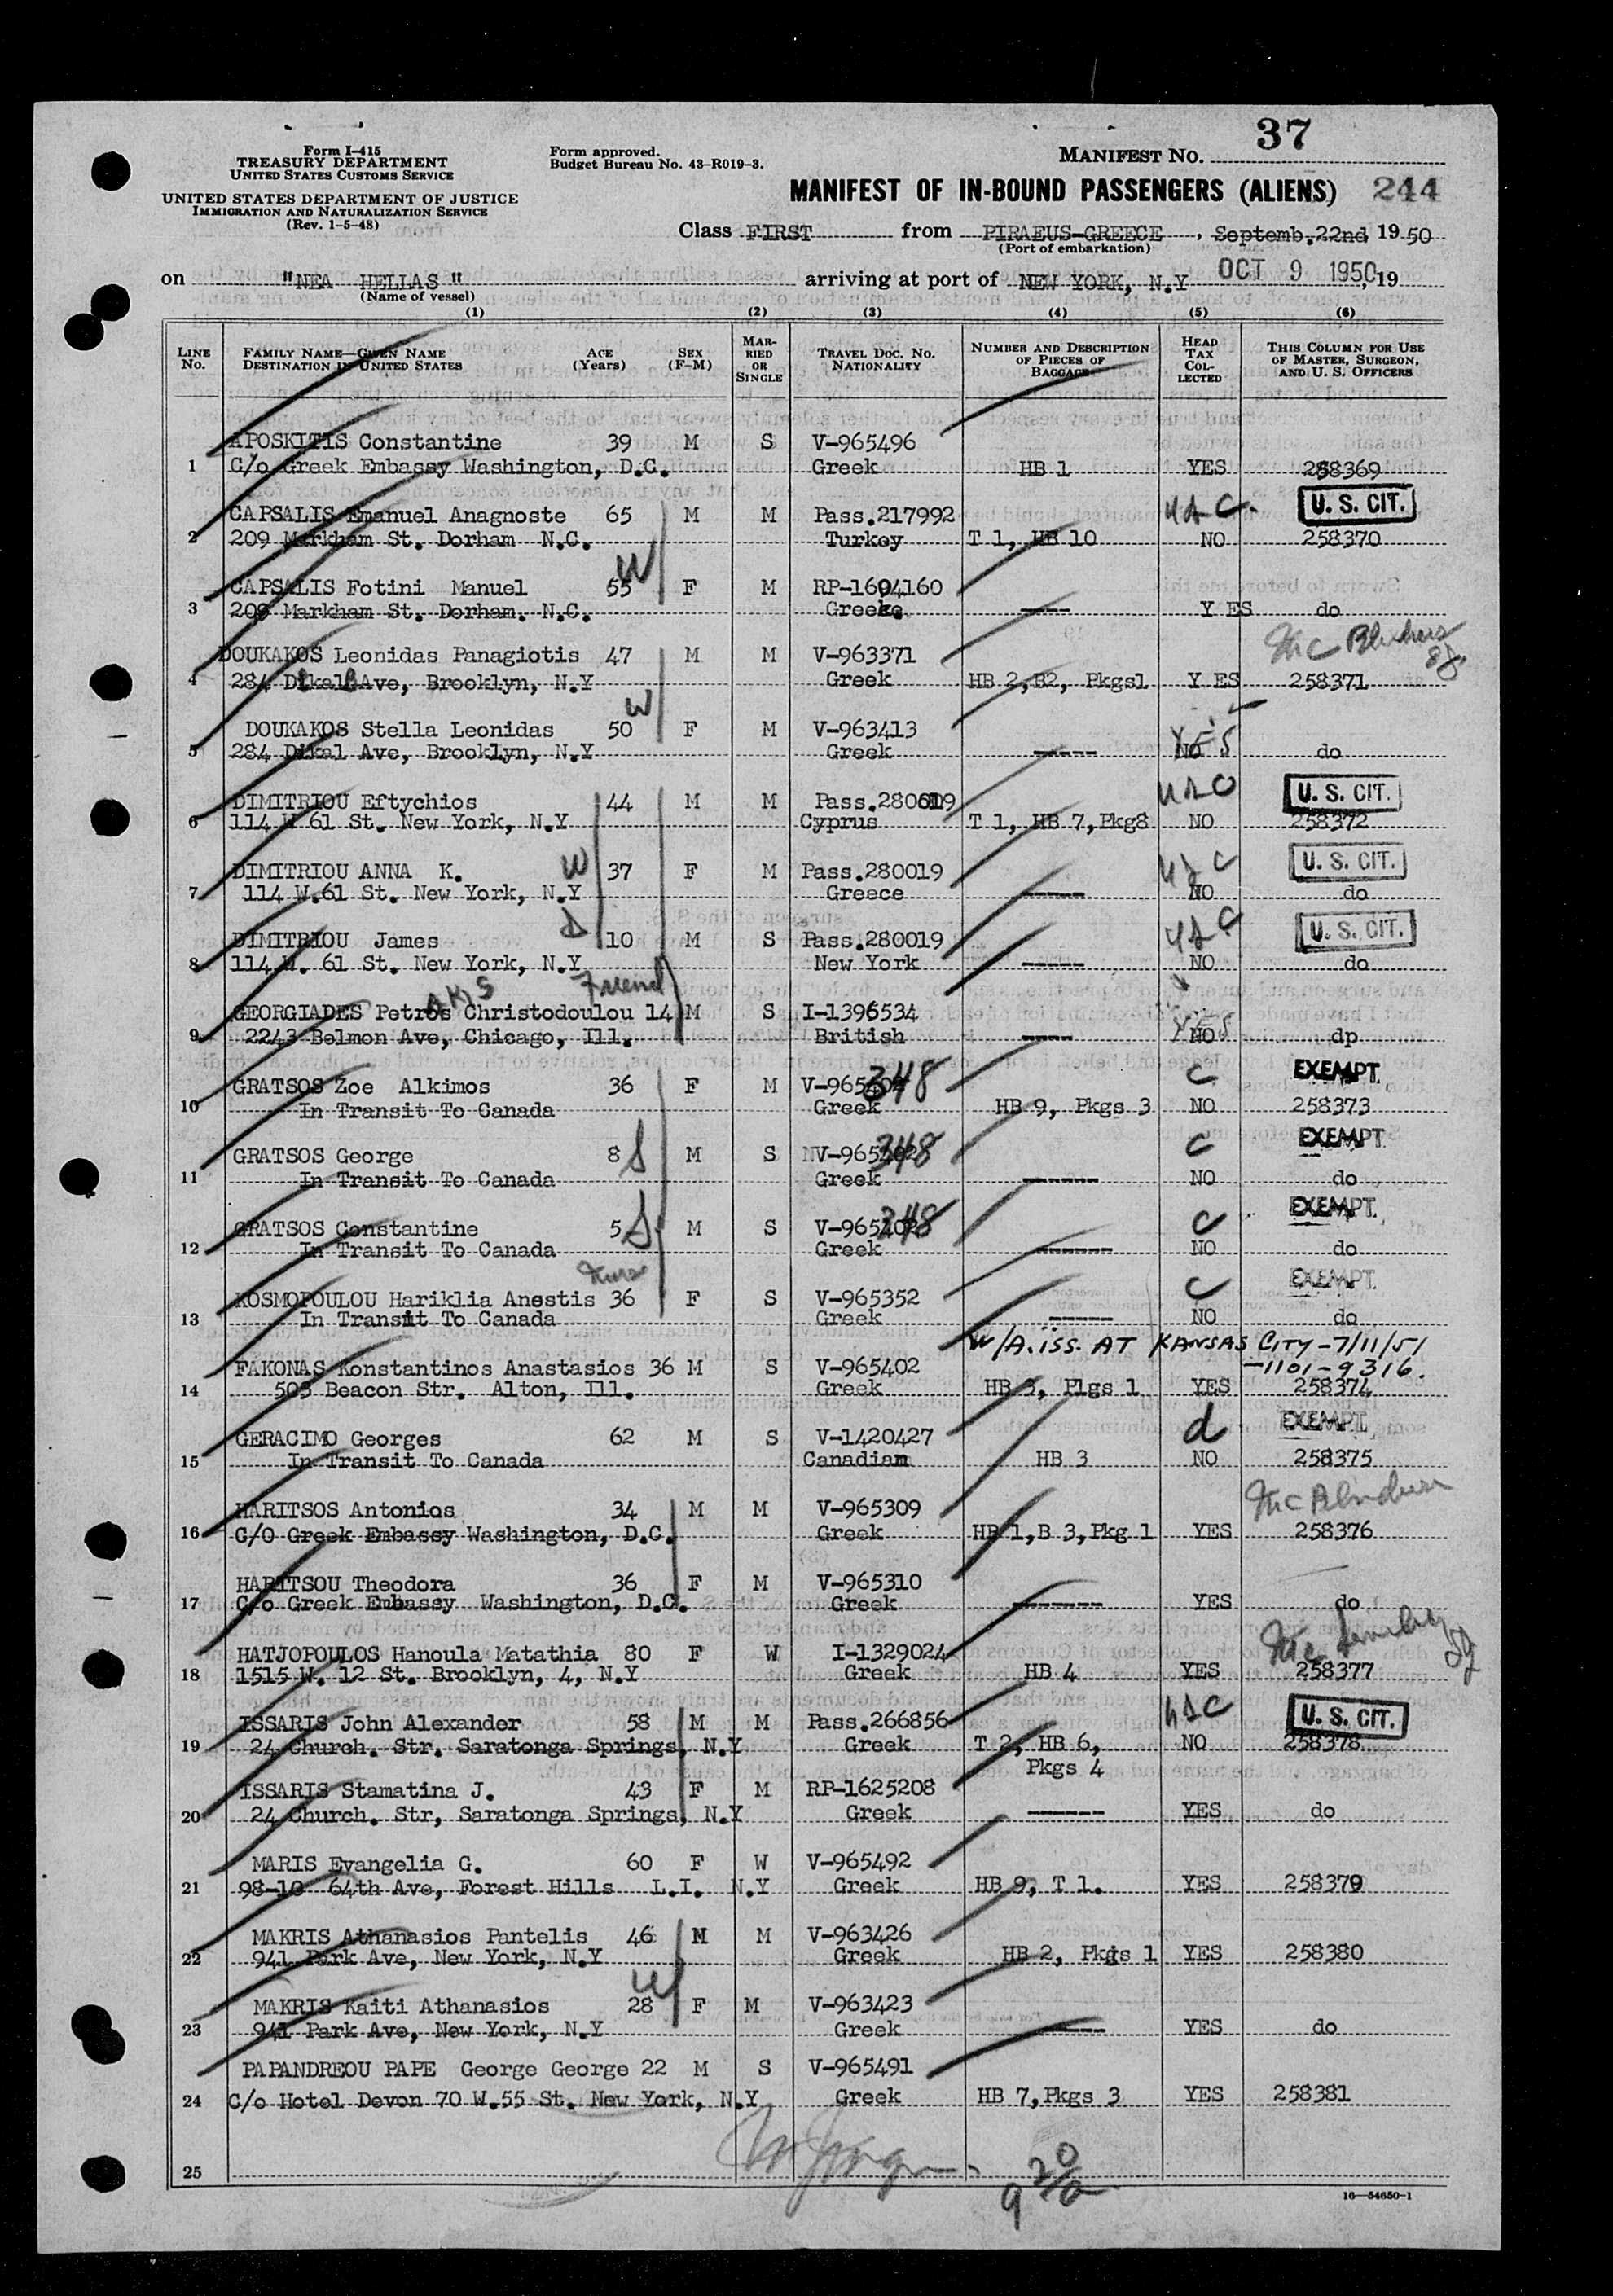 37
Form I-415
TREASURY DEPARTMENT
UNITED STATES CUSTOMS SERVICE
UNITED STATES DEPARTMENT OF JUSTICE
IMMIGRATION AND NATURALIZATION SERVICE
(Rev. 1-5-48)
Form approved.
Budget Bureau No. 43-R019-3.
MANIFEST NO.
MANIFEST OF IN-BOUND PASSENGERS (ALIENS) 244
Class FIRST from PIRAEUS-GREECE, Septemb.22nd, 1950
(Port of embarkation)
on "NEA HELLAS" arriving at port of NEW YORK, N.Y OCT 9 1950, 19
(Name of vessel)
(1) (2) (3) (4) (5) (6)
LINE No. FAMILY NAME—GIVEN NAME DESTINATION IN UNITED STATES AGE (Years) SEX (F-M) MARRIED OR SINGLE TRAVEL DOC. NO. NATIONALITY NUMBER AND DESCRIPTION OF PIECES OF BAGGAGE HEAD TAX COLLECTED THIS COLUMN FOR USE OF MASTER, SURGEON, AND U. S. OFFICERS
APOSKITIS Constantine 39 M S V-965496
1 C/o Greek Embassy Washington, D.C. Greek HB 1 YES 258369
CAPSALIS Emanuel Anagnoste 65 M M Pass.217992 USC. U. S. CIT.
2 209 Markham St. Dorham N.C. Turkey T 1, HB 10 NO 258370
W
CAPSALIS Fotini Manuel 55 F M RP-1604160
3 209 Markham St. Dorham. N.C. Greek ----- Y ES do
DOUKAKOS Leonidas Panagiotis 47 M M V-963371
4 284 Ave, Brooklyn, N.Y Greek HB 2,B2, Pkgs1 Y ES 258371
W
DOUKAKOS Stella Leonidas 50 F M V-963413 YES
5 284 Dikal Ave, Brooklyn, N.Y Greek ----- NO do
DIMITRIOU Eftychios 44 M M Pass. USC U. S. CIT.
6 114 W 61 St. New York, N.Y Cyprus T 1, HB 7,Pkg8 NO 258372
DIMITRIOU ANNA K. W 37 F M Pass.280019 USC U. S. CIT.
7 114 W.61 St. New York, N.Y Greece ----- NO do
DIMITRIOU James D 10 M S Pass.280019 USC U. S. CIT.
8 114 W. 61 St. New York, N.Y New York ----- NO do
AKIS Friend
GEORGIADES Petros Christodoulou 14 M S I-1396534 YES
9 2243 Belmon Ave, Chicago, Ill. British ---- NO dp
GRATSOS Zoe Alkimos 36 F M V-965348 C EXEMPT
10 In Transit To Canada Greek HB 9, Pkgs 3 NO 258373
GRATSOS George 8 S M S V-965348 C EXEMPT
11 In Transit To Canada Greek ------ NO do
GRATSOS Constantine 5 S M S V-965348 C EXEMPT
12 In Transit To Canada Greek ------ NO do
KOSMOPOULOU Hariklia Anestis 36 F S V-965352 C EXEMPT
13 In Transit To Canada Greek ----- NO do
W/A. iss. AT KANSAS CITY - 7/11/51
-1101-9316.
FAKONAS Konstantinos Anastasios 36 M S V-965402
14 505 Beacon Str. Alton, Ill. Greek HB 3, Plgs 1 YES 258374
GERACIMO Georges 62 M S V-1420427 d EXEMPT
15 In Transit To Canada Canadian HB 3 NO 258375
HARITSOS Antonios 34 M M V-965309
16 C/O Greek Embassy Washington, D.C. Greek HB 1,B 3,Pkg 1 YES 258376
HARITSOU Theodora 36 F M V-965310
17 C/o Greek Embassy Washington, D.C. Greek ------- YES do
HATJOPOULOS Hanoula Matathia 80 F W I-1329024
18 1515 W. 12 St. Brooklyn, 4, N.Y Greek HB 4 YES 258377
ISSARIS John Alexander 58 M M Pass.266856 USC U. S. CIT.
19 24 Church. Str. Saratonga Springs, N.Y Greek T 2, HB 6, NO 258378
Pkgs 4
ISSARIS Stamatina J. 43 F M RP-1625208
20 24 Church. Str, Saratonga Springs, N.Y Greek ------ YES do
MARIS Evangelia G. 60 F W V-965492
21 98-10 64th Ave, Forest Hills L.I. N.Y Greek HB 9, T 1. YES 258379
MAKRIS Athanasios Pantelis 46 M M V-963426
22 941 Park Ave, New York, N.Y Greek HB 2, Pkgs 1 YES 258380
W
MAKRIS Kaiti Athanasios 28 F M V-963423
23 941 Park Ave, New York, N.Y Greek ----- YES do
PAPANDREOU PAPE George George 22 M S V-965491
24 C/o Hotel Devon 70 W.55 St. New York, N.Y Greek HB 7,Pkgs 3 YES 258381
25
16—54650-1